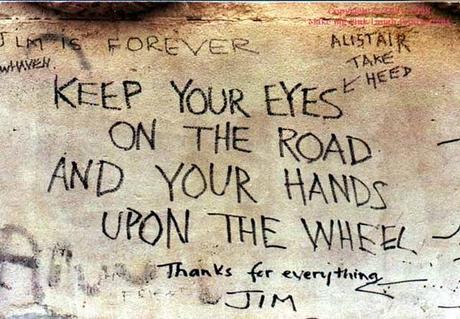 IS FOREVER
ALISTAIR
TAKE
HEED
WHAVEN.
KEEP YOUR EYES
ON THE ROAD
AND YOUR HANDS
UPON THE WHEEL
Thanks for everything
JIM